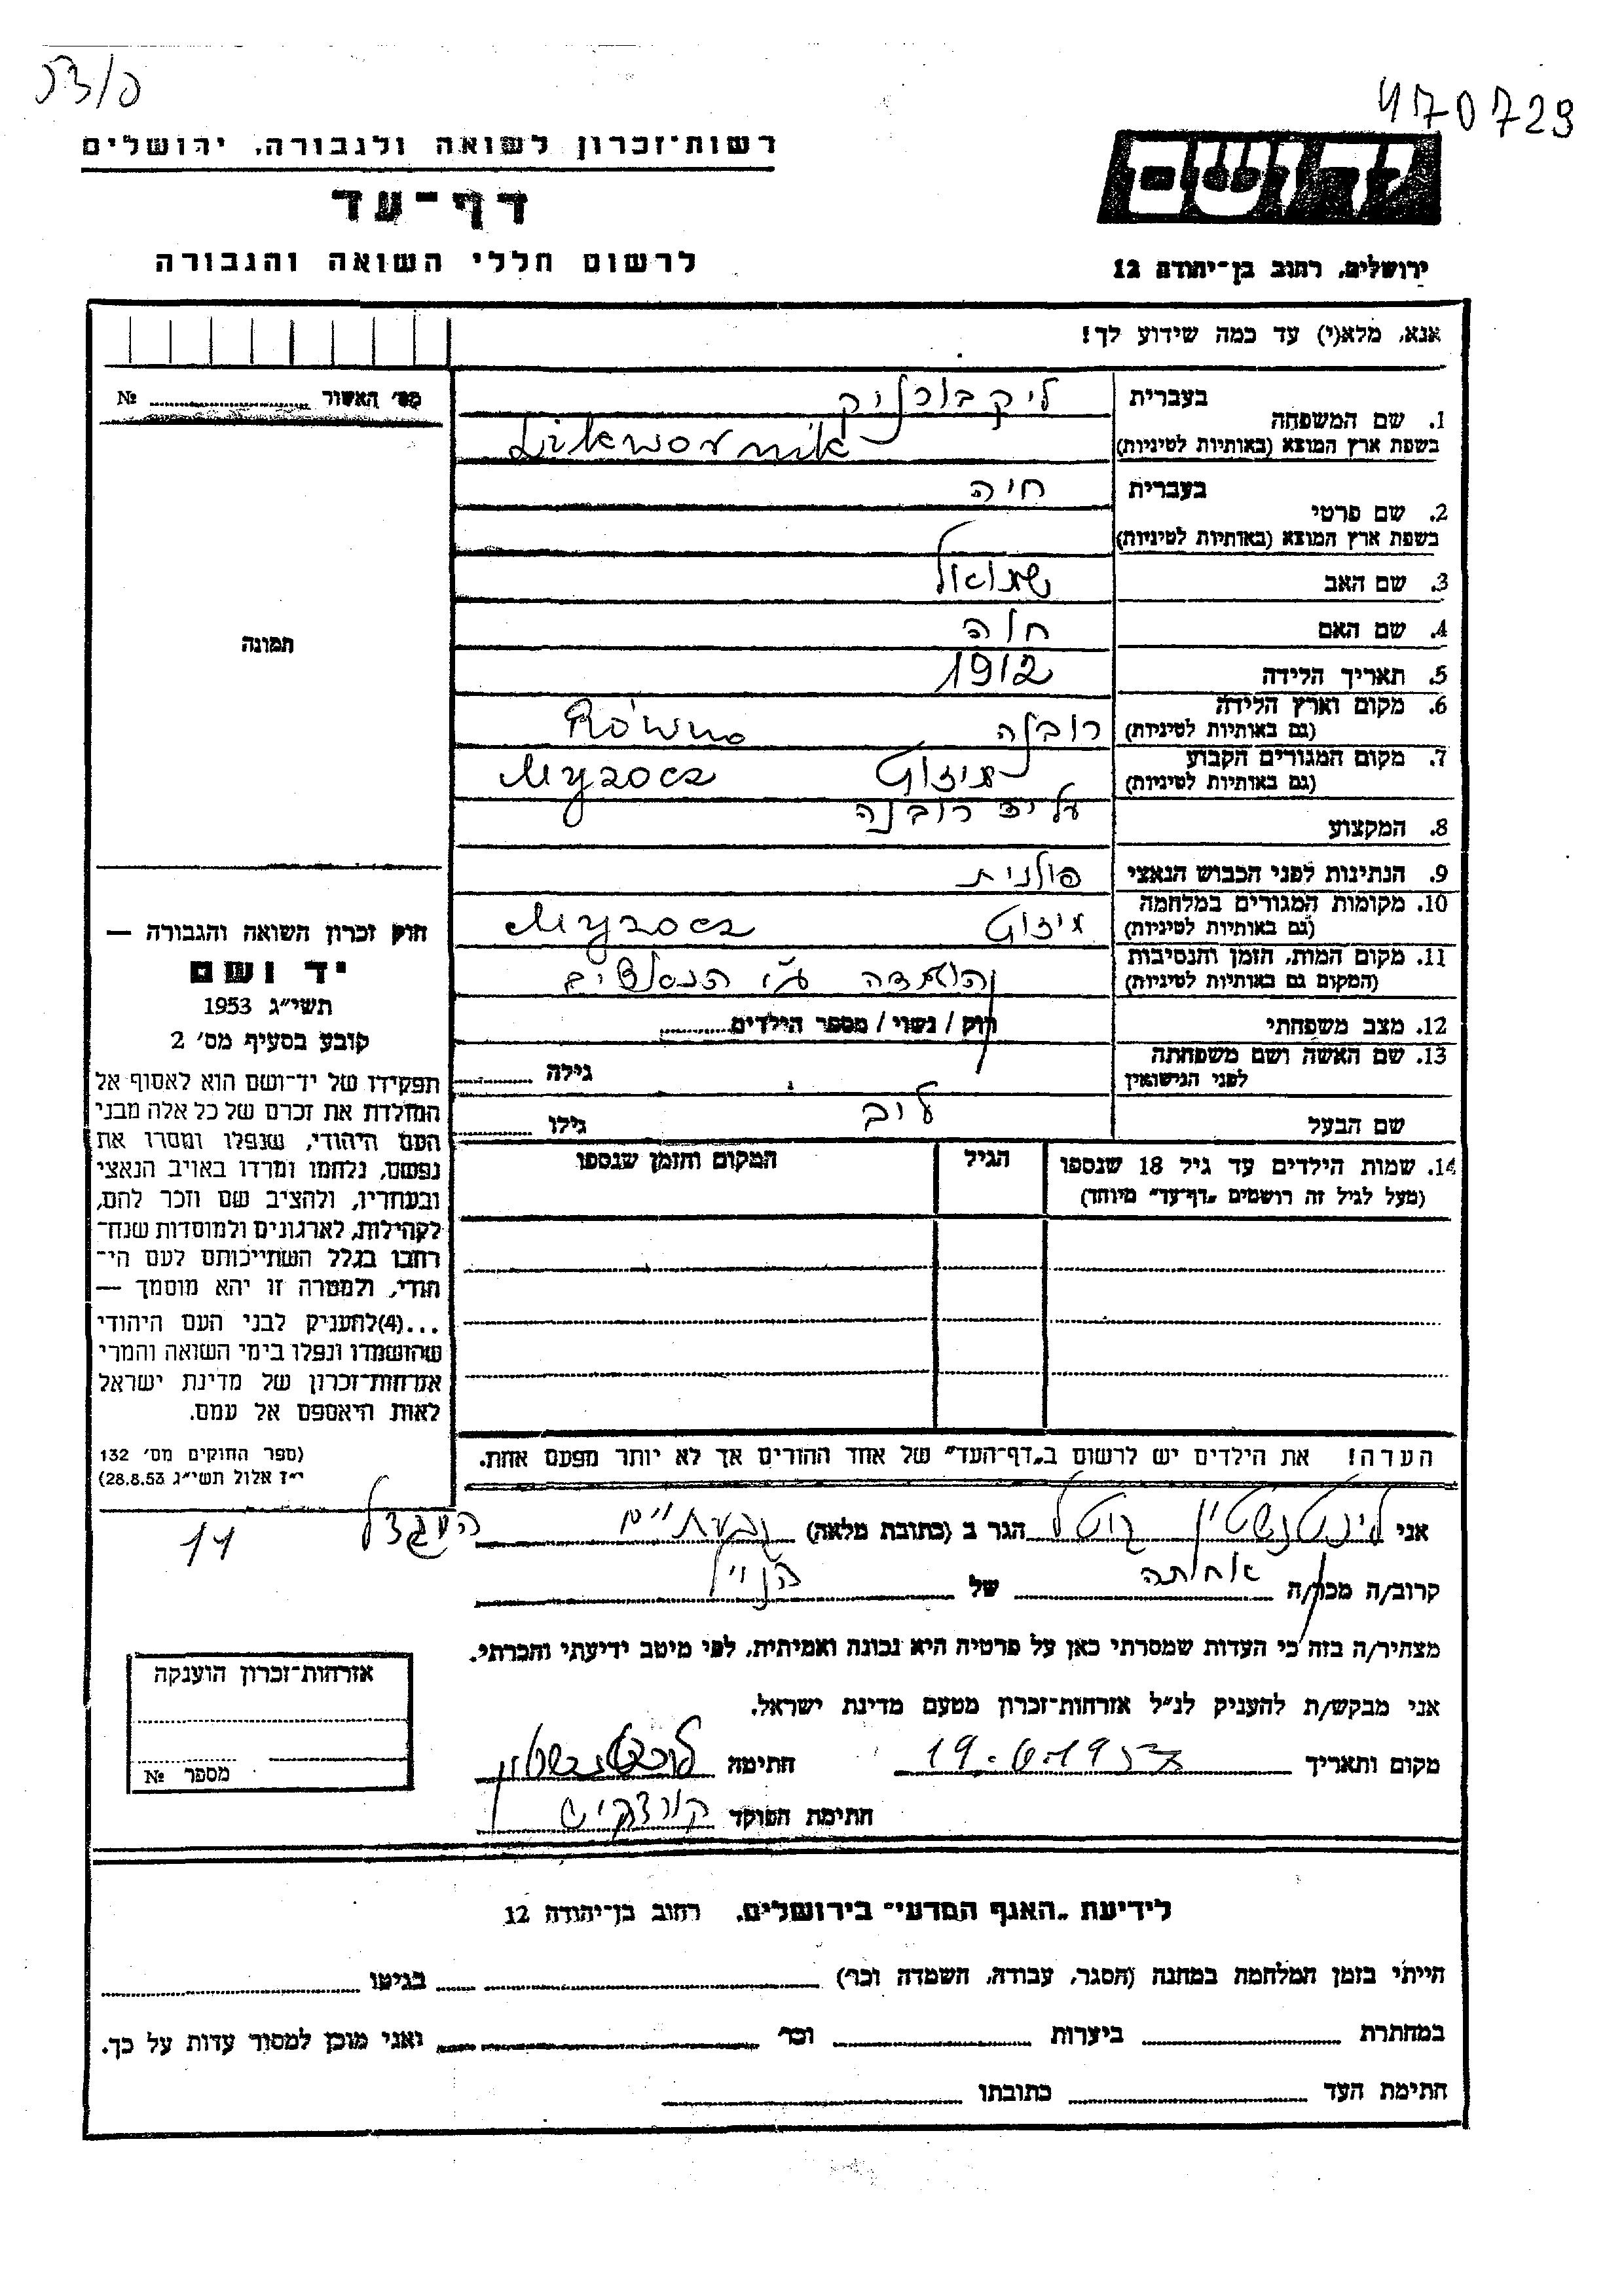 נ/53
470729
רשות־זכרון לשואה ולגבורה, ירושלים
דף־עד
לרשום חללי השואה והגבורה
ידושם
ירושלים, רחוב בן־יהודה 12
אנא, מלא(י) עד כמה שידוע לך!
מס׳ האשור № 
1. שם המשפחה
בעברית ליקבורניק
בשפת ארץ המוצא (באותיות לטיניות) Likwornik
2. שם פרטי
בעברית חיה
בשפת ארץ המוצא (באותיות לטיניות)
3. שם האב שמואל
4. שם האם חוה
5. תאריך הלידה 1912
6. מקום וארץ הלידה רובנה Równo
(גם באותיות לטיניות)
7. מקום המגורים הקבוע מיזוט Myzocz
(גם באותיות לטיניות) על יד רובנה
8. המקצוע
9. הנתינות לפני הכבוש הנאצי פולנית
10. מקומות המגורים במלחמה מיזוט Myzocz
(גם באותיות לטיניות)
11. מקום המות, הזמן והנסיבות הושמדה ע״י הנאצים
(המקום גם באותיות לטיניות)
12. מצב משפחתי רוק / נשוי / מספר הילדים
13. שם האשה ושם משפחתה גילה
לפני הנישואין
שם הבעל לייב גילו
14. שמות הילדים עד גיל 18 שנספו הגיל המקום והזמן שנספו
(מעל לגיל זה רושמים „דף־עד״ מיוחד)
הערה! את הילדים יש לרשום ב„דף־העד״ של אחד ההורים אך לא יותר מפעם אחת.
תמונה
חוק זכרון השואה והגבורה —
יד ושם
תשי״ג 1953
קובע בסעיף מס׳ 2
תפקידו של יד־ושם הוא לאסוף אל
המולדת את זכרם של כל אלה מבני
העם היהודי, שנפלו ומסרו את
נפשם, נלחמו ומרדו באויב הנאצי
ובעוזריו, ולהציב שם וזכר להם,
לקהילות, לארגונים ולמוסדות שנח־
רבו בגלל השתייכותם לעם הי־
הודי, ולמטרה זו יהא מוסמך —
...(4)להעניק לבני העם היהודי
שהושמדו ונפלו בימי השואה והמרי
אזרחות־זכרון של מדינת ישראל
לאות היאספם אל עמם.
(ספר החוקים מס׳ 132
י״ז אלול תשי״ג 28.8.53)
אני ליכטנשטיין הגר ב (כתובת מלאה) גבעתיים המגדל 11
קרוב/ה מכר/ה אחותה של הנ״ל
מצהיר/ה בזה כי העדות שמסרתי כאן על פרטיה היא נכונה ואמיתית, לפי מיטב ידיעתי והכרתי.
אני מבקש/ת להעניק לנ״ל אזרחות־זכרון מטעם מדינת ישראל.
מקום ותאריך חתימה ליכטנשטיין
חתימת הפוקד
אזרחות־זכרון הוענקה
מספר №
לידיעת „האגף המדעי״ בירושלים, רחוב בן־יהודה 12
הייתי בזמן המלחמה במחנה (הסגר, עבודה, השמדה וכו׳) בגיטו
במחתרת ביערות וכו׳ ואני מוכן למסור עדות על כך.
חתימת העד כתובתו